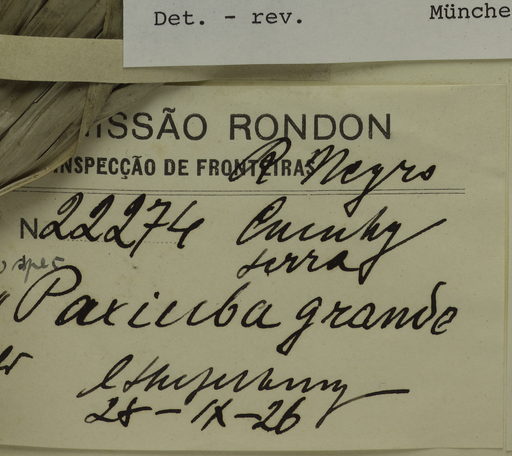 Det. - rev. Münche
MISSÃO RONDON
INSPECÇÃO DE FRONTEIRAS
R. Negro
N 22274 Cucuhy
serra
Paxiuba grande
28-IX-26